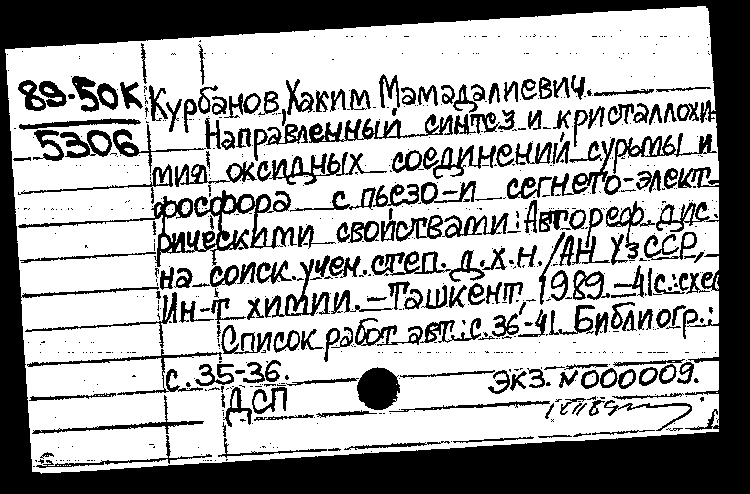 89-50К
5306
Курбанов, Хаким Мамадалиевич.
Направленный синтез и кристаллохи-
мия оксидных соединений сурьмы и
фосфора с пьезо- и сегнето-элект-
рическими свойствами: Автореф. дис.
на соиск. учен. степ. д.х.н. / АН УзССР,
Ин-т химии. – Ташкент, 1989. – 41с.: схем
Список работ авт.: с. 36-41. Библиогр.:
с. 35-36.
Экз. N 000009.
ДСП